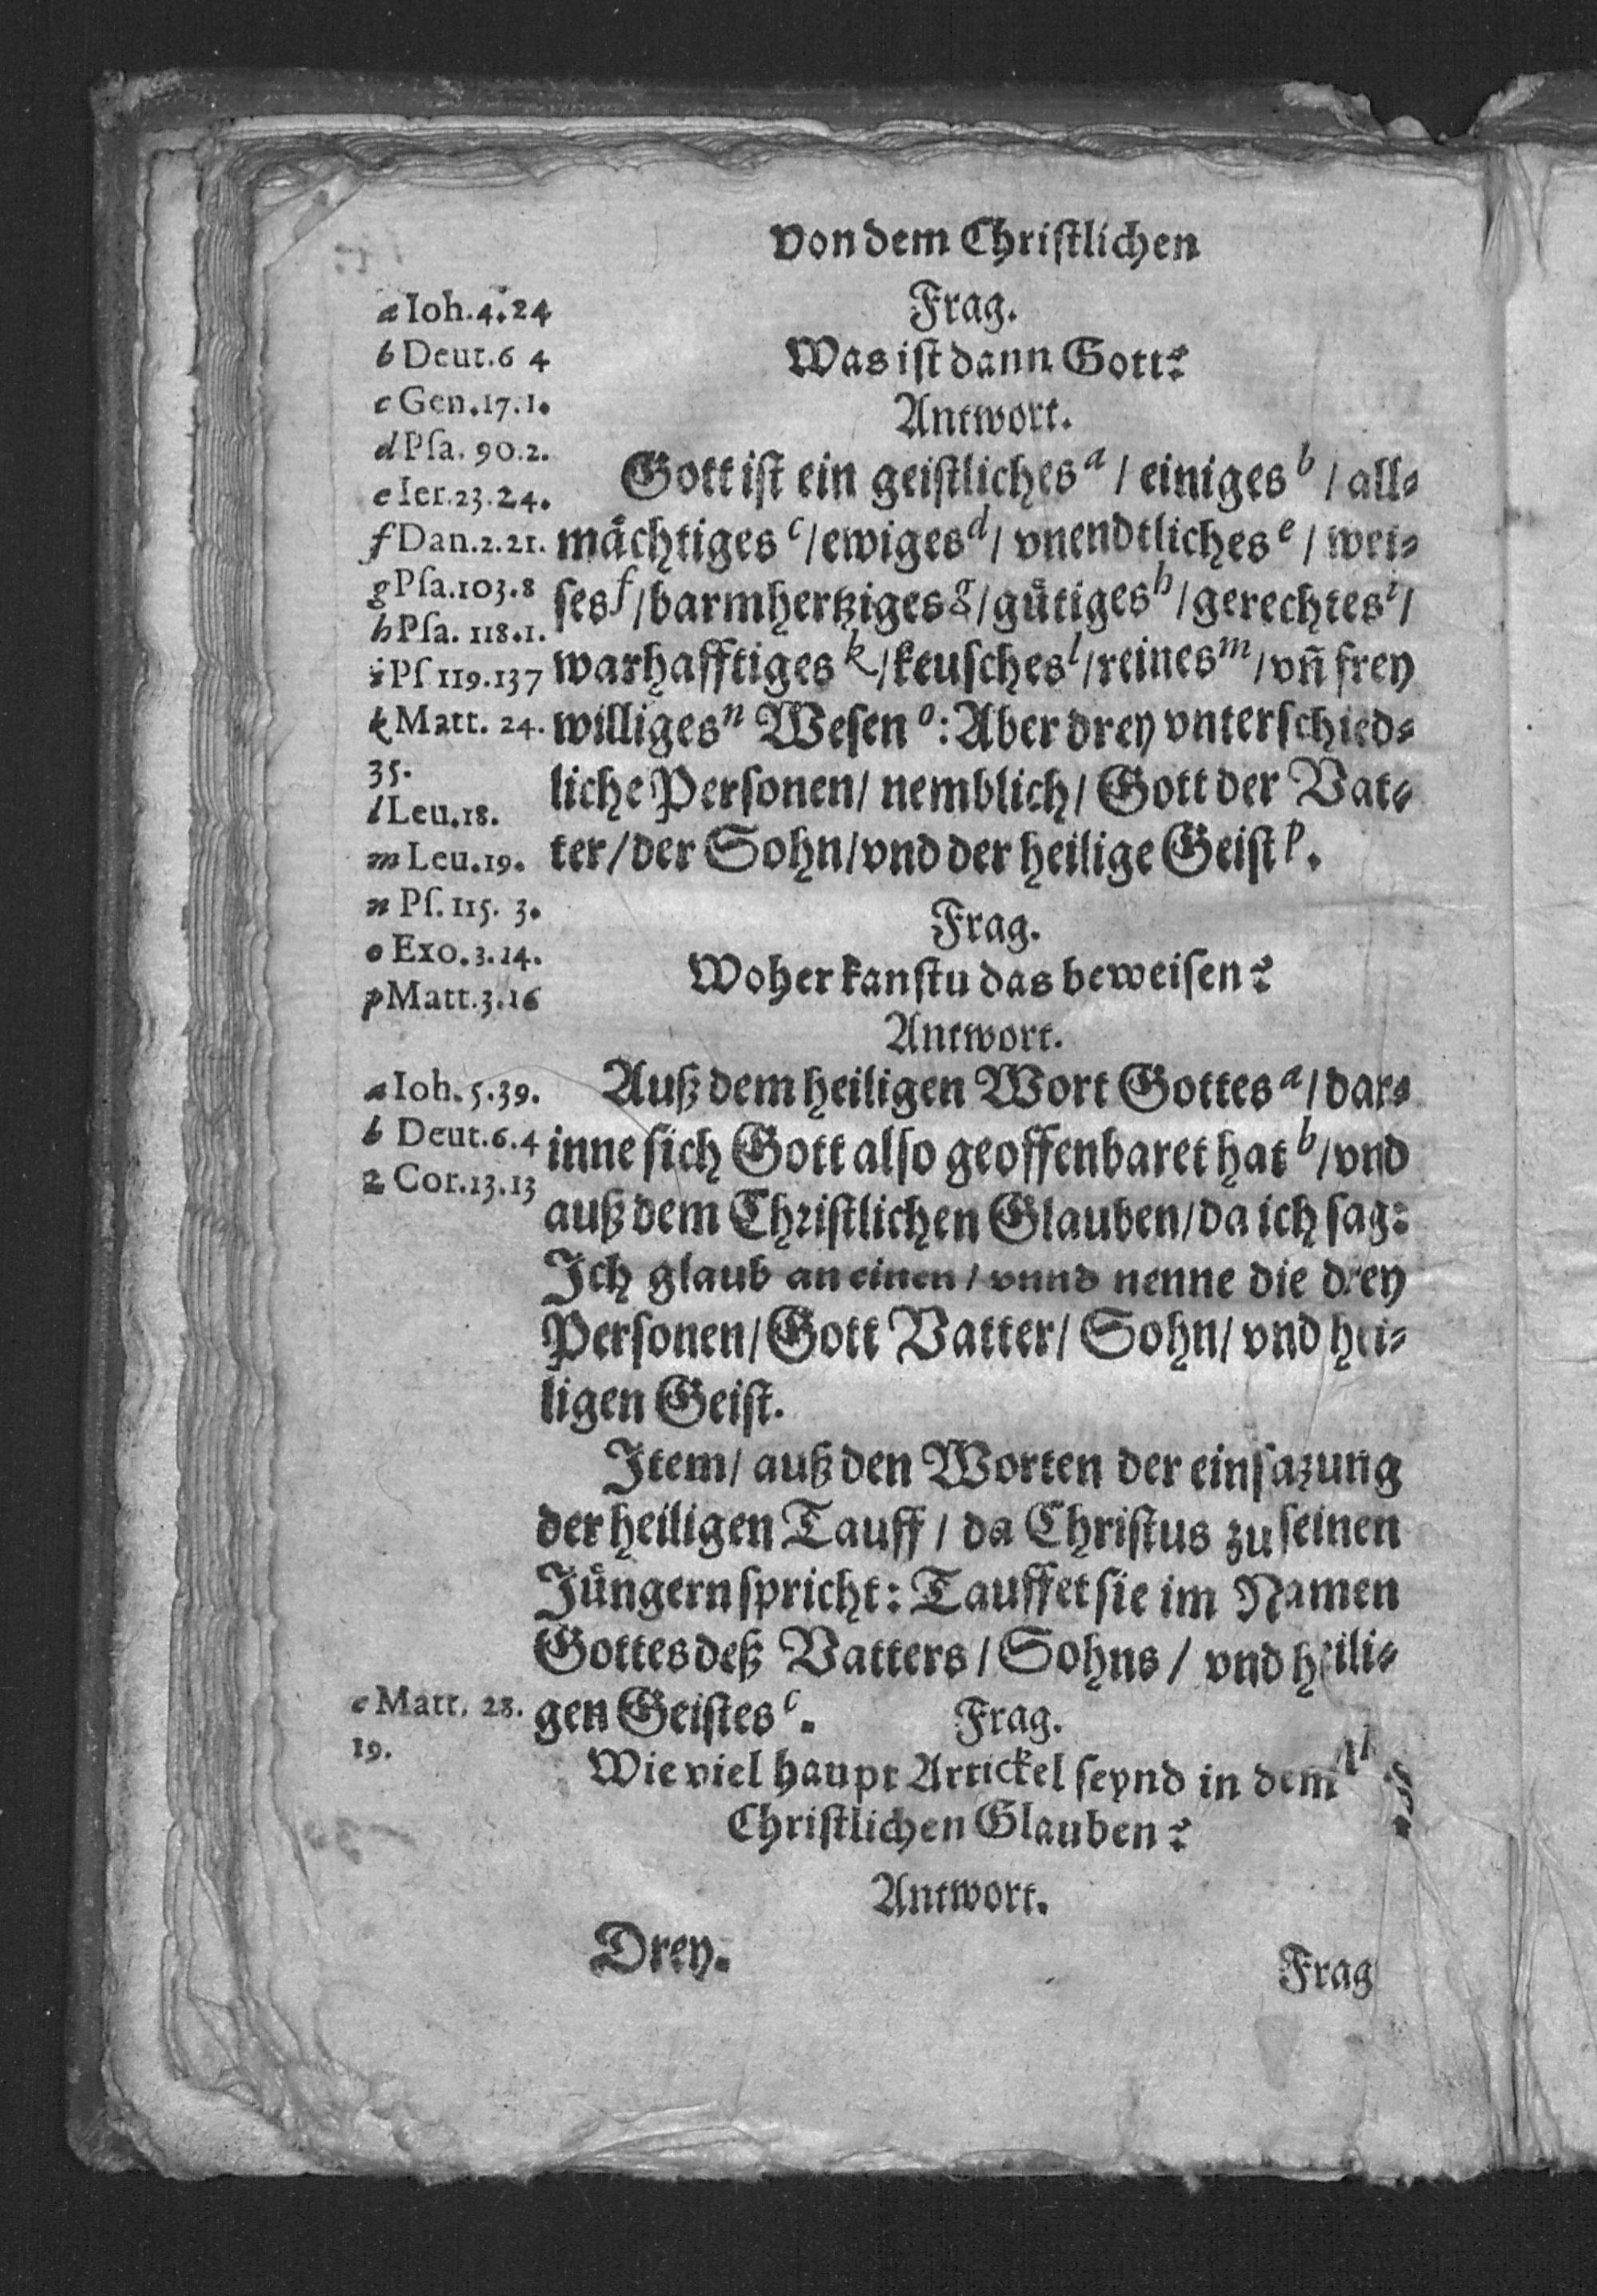 von dem Christlichen
Frag.
Was ist dann Gott?
Antwort.
Gott ist ein geistliches a / einiges b / all-
mächtiges c / ewiges d / vnendtliches e / wei-
ses f / barmhertziges g / gütiges h / gerechtes i /
warhafftiges k / keusches l / reines m / vñ frey
williges n Wesen o : Aber drey vnterschied-
liche Personen / nemblich / Gott der Vat-
ter / der Sohn / vnd der heilige Geist p .
a Ioh.4.24
b Deut.6 4
c Gen.17.1.
d Psa. 90.2.
e Ier.23.24.
f Dan.2.21.
g Psa.103.8
h Psa. 118.1.
i Ps 119.137
k Matt. 24.
35.
l Leu.18.
m Leu.19.
n Ps. 115. 3.
o Exo.3.14.
p Matt.3.16
Frag.
Woher kanstu das beweisen?
Antwort.
Auß dem heiligen Wort Gottes a / dar-
inne sich Gott also geoffenbaret hat b / vnd
auß dem Christlichen Glauben / da ich sag:
Ich glaub an einen / vnnd nenne die drey
Personen / Gott Vatter / Sohn / vnd hei-
ligen Geist.
a Ioh. 5.39.
b Deut.6.4
2 Cor.13.13
Item / auß den Worten der einsazung
der heiligen Tauff / da Christus zu seinen
Jüngern spricht: Tauffet sie im Namen
Gottes deß Vatters / Sohns / vnd heili-
gen Geistes c .
c Matt. 28.
19.
Frag.
Wie viel haupt Artickel seynd in dem
Christlichen Glauben?
Antwort.
Drey.
Frag